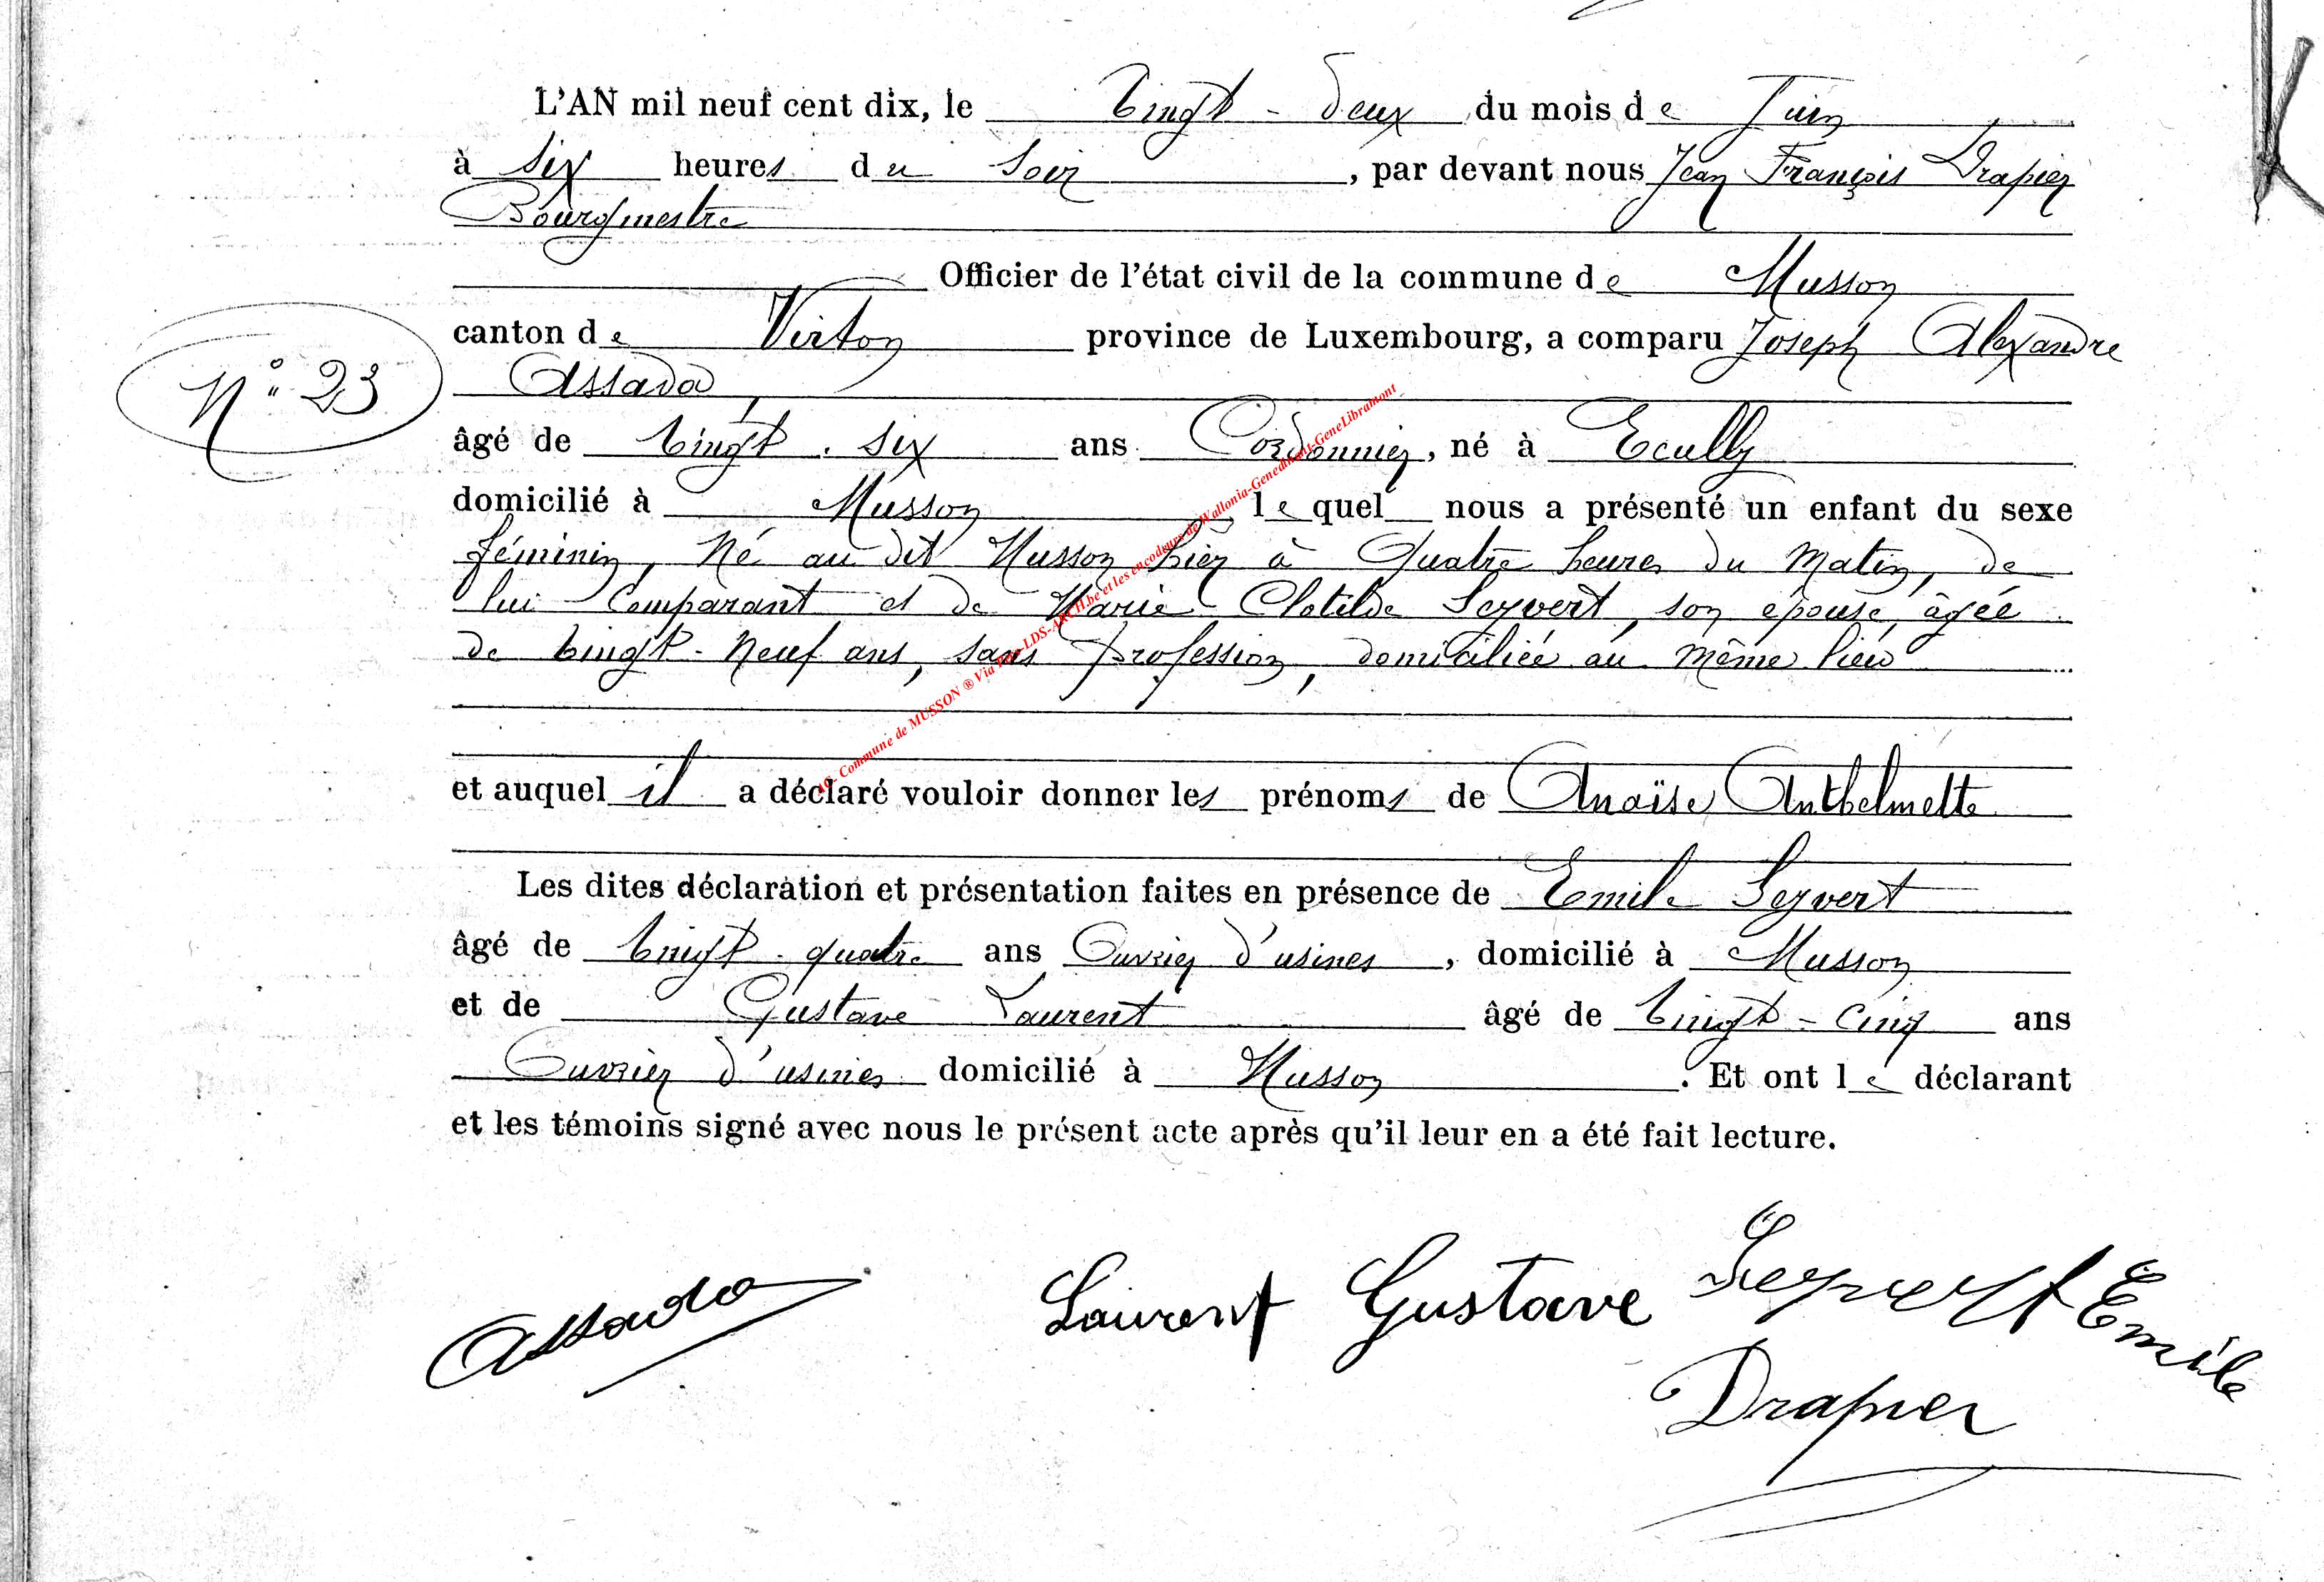 L'AN mil neuf cent dix, le Vingt - Deux du mois de Juin
à six heures du soir, par devant nous Jean François Drapier
Bourgmestre
Officier de l'état civil de la commune de Musson
canton de Virton province de Luxembourg, a comparu Joseph Alexandre
N° 23
Assada,
âgé de Vingt-six ans Cordonnier, né à Ecully
domicilié à Musson, lequel nous a présenté un enfant du sexe
féminin, Né au dit Musson hier à Quatre heures du Matin, de
lui Comparant et de Marie Clotilde Seyvert, son épouse, âgée
de Vingt-Neuf ans, sans profession, domiciliée au même lieu
AG- Commune de MUSSON ® Via LDS-ARCH.be et les encodeurs de Wallonia-Genedinant-GeneLibramont
et auquel il a déclaré vouloir donner les prénoms de Anaïse Anthelmette
Les dites déclaration et présentation faites en présence de Emile Seyvert
âgé de Vingt-quatre ans Ouvrier d'usines, domicilié à Musson
et de Gustave Laurent âgé de Vingt-Cinq ans
Ouvrier d'usines domicilié à Musson. Et ont le déclarant
et les témoins signé avec nous le présent acte après qu'il leur en a été fait lecture.
Assada Laurent Gustave Seyvert Emile
Drapier